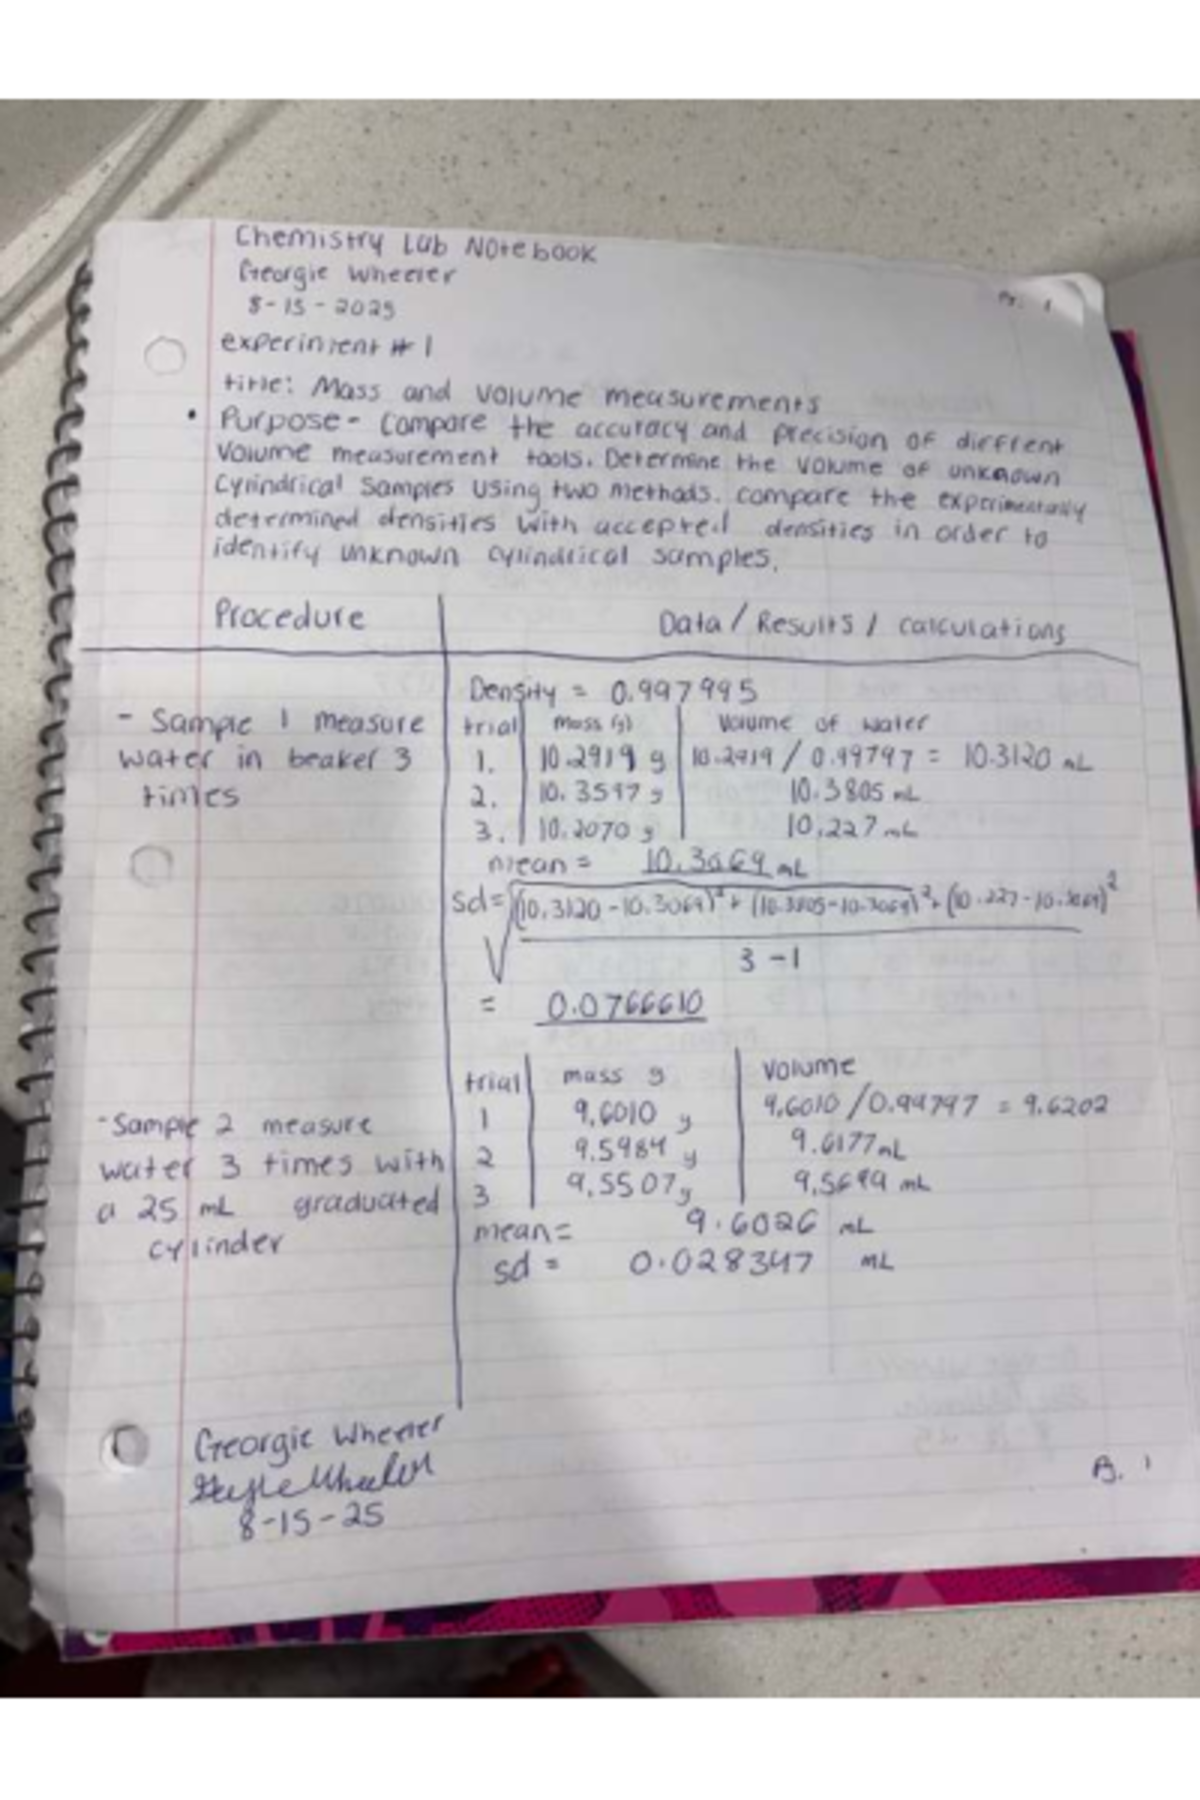 Chemistry Lab Notebook
Georgie Wheeler
8-15-2025
Pg. 1
experiment # 1
title: Mass and volume measurements
• Purpose - Compare the accuracy and precision of diffrent
volume measurement tools. Determine the volume of unknown
cylindrical samples using two methods. compare the experimentally
determined densities with accepted densities in order to
identify unknown cylindrical samples.
Procedure Data / Results / calculations
Density = 0.997995
- Sample 1 measure
water in beaker 3
times
trial mass (g) volume of water
1. 10.2919 g 10.2919 / 0.99797 = 10.3120 mL
2. 10.3597 g 10.3805 mL
3. 10.2070 g 10.227 mL
mean = 10.3069 mL
sd = √(10.3120 - 10.3069)² + (10.3805 - 10.3069)² + (10.227 - 10.3069)²
3 - 1
= 0.0766610
- Sample 2 measure
water 3 times with
a 25 mL graduated
cylinder
trial mass g volume
1 9.6010 g 9.6010 / 0.99797 = 9.6202
2 9.5984 g 9.6177 mL
3 9.5507 g 9.5699 mL
mean = 9.6026 mL
sd = 0.028347 mL
Georgie Wheeler
Georgie Wheeler
8-15-25
P. 1